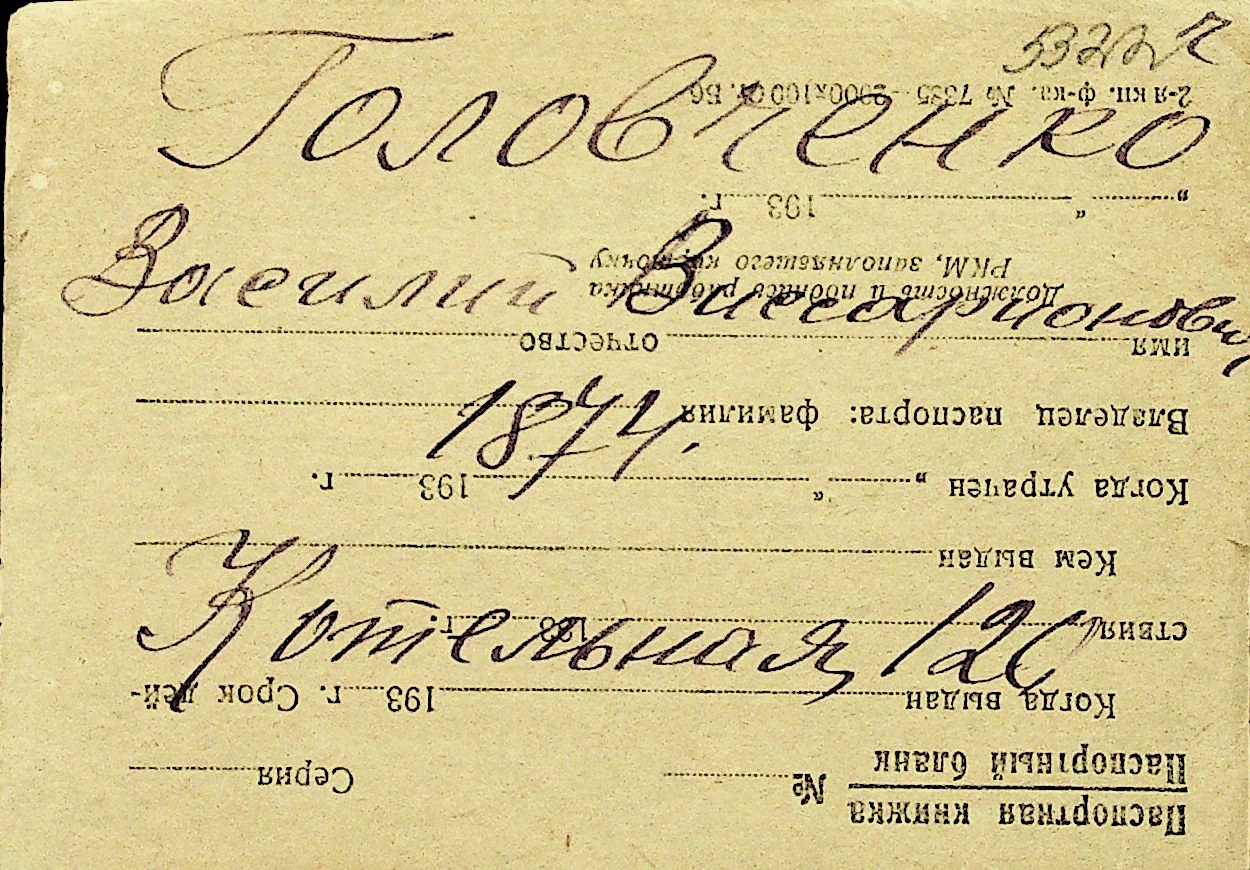 53227
Головченко
Василий Виссарионович
1874.
Котельная, 120
Паспортная книжка
Паспортный бланк
№ Серия
Когда выдан 193 г. Срок дей-
ствия 193 г.
Кем выдан
Когда утрачен „ “ 193 г.
Владелец паспорта: фамилия
имя отчество
Должность и подпись работника
РКМ, заполнявшего карточку
„ “ 193 г.
2-я кп. ф-ка. № 7335—2000х100 ст. Вб